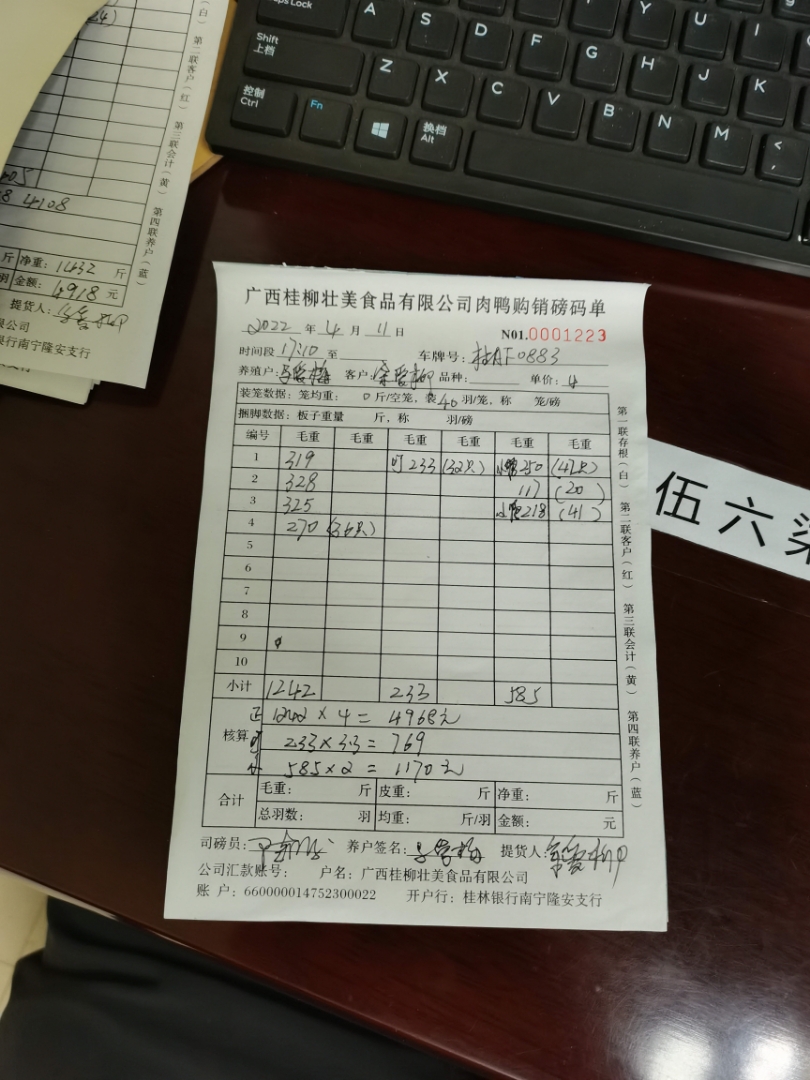 Caps Lock A S D F G H J K Y U I
Shift 上档 Z X C V B N M < ,
控制 Ctrl Fn 换档 Alt
（白） 第二联客户（红） 第三联会计（黄） 第四联养户（蓝）
4108
斤 净重： 1432 斤
羽 金额： 4918 元
提货人：
限公司
银行南宁隆安支行
广西桂柳壮美食品有限公司肉鸭购销磅码单
2022 年 4 月 11 日 N01.0001223
时间段 17:10 至 车牌号： 0883
养殖户： 客户： 品种： 单价： 4
装笼数据：笼均重： 0 斤/空笼，装 40 羽/笼，称 笼/磅
捆脚数据：板子重量 斤，称 羽/磅
编号 毛重 毛重 毛重 毛重 毛重 毛重
1 319 233 (32只) 250 (47只)
2 328 117 (20 )
3 325 218 (41 )
4 270 (36只)
5
6
7
8
9
10
小计 1242 233 585
核算 正 1242 × 4 = 4968元
233 × 3.3 = 769
小 585 × 2 = 1170元
合计 毛重： 斤 皮重： 斤 净重： 斤
总羽数： 羽 均重： 斤/羽 金额： 元
司磅员： 养户签名： 提货人：
公司汇款账号： 户名：广西桂柳壮美食品有限公司
账 户：660000014752300022 开户行：桂林银行南宁隆安支行
第一联存根（白） 第二联客户（红） 第三联会计（黄） 第四联养户（蓝）
伍六柒